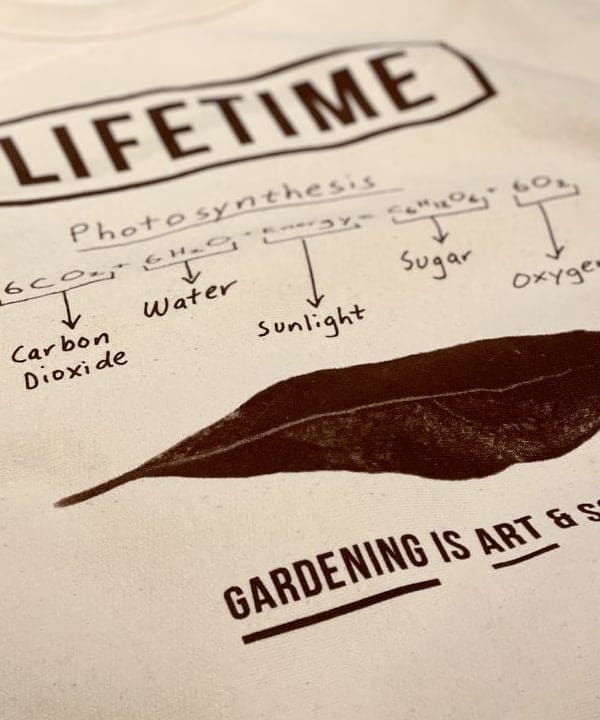 LIFETIME
Photosynthesis
6CO₂ + 6H₂O + Energy = C₆H₁₂O₆ + 6O₂
Carbon Dioxide
Water
Sunlight
Sugar
oxyge
GARDENING IS ART & S